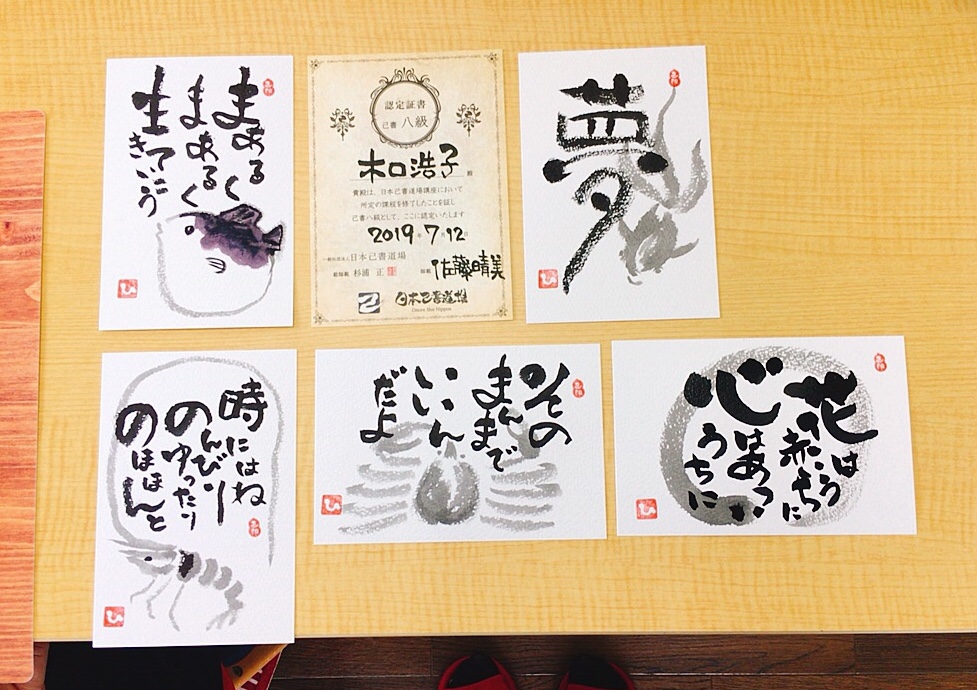 まあるく
まあるく
生きていこう
ひ
認定証書
己書 八級
木口浩子 殿
貴殿は、日本己書道場講座において
所定の課程を修了したことを証し
己書八級として、ここに認定いたします
2019年7月12日
一般社団法人日本己書道場
総師範 杉浦 正 師範 佐藤晴美
日本己書道場
Onore Sho Nippon
夢
ひ
時にはね
のんびり
ゆったり
のほほんと
ひ
その
まんまで
いいん
だよ
ひ
花は
赤いうちに
心はあつい
うちに
ひ